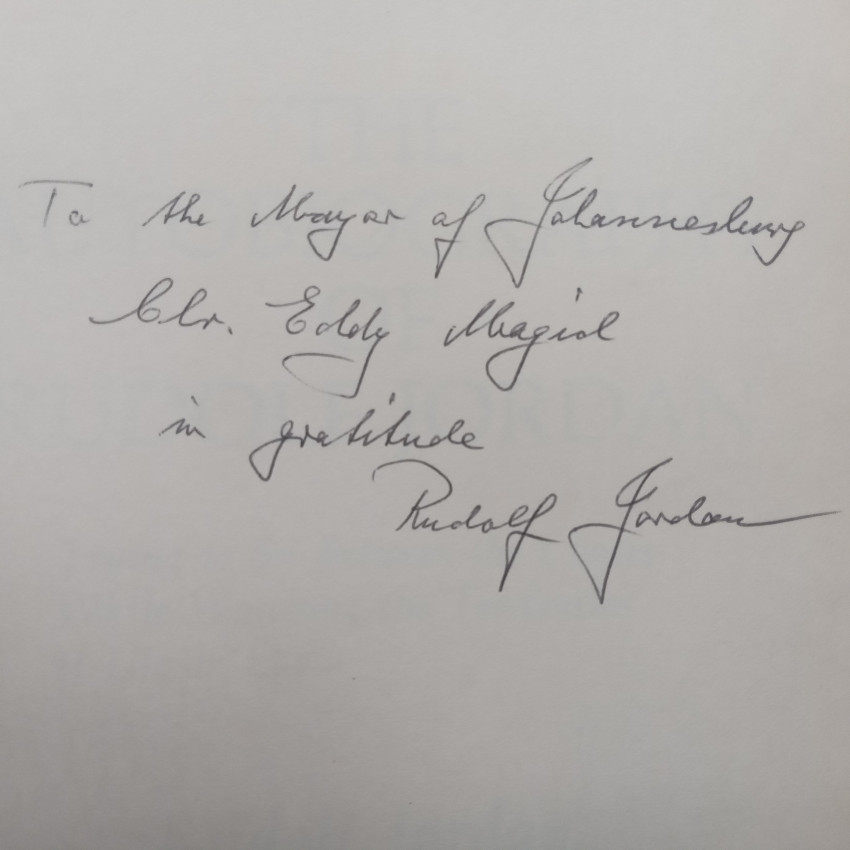 To the Mayor of Johannesburg
Clr. Eddy Magid
in gratitude
Rudolf Jordan